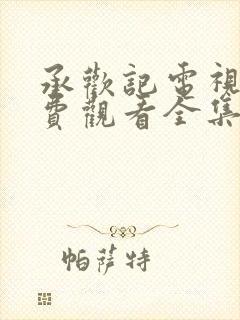 承歡記電視
費觀看全集
帕薩特